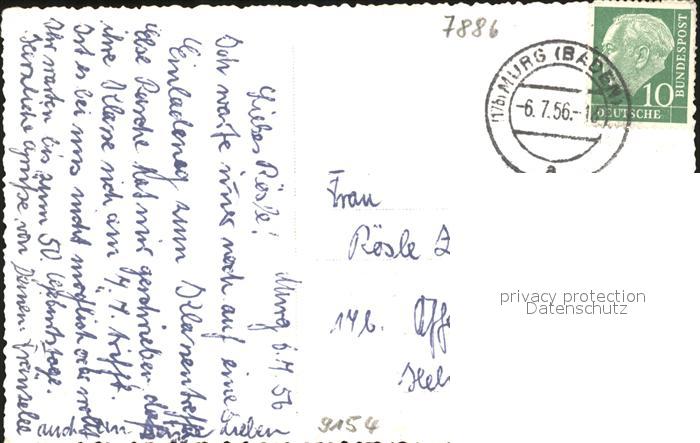 7886
MURG (BADEN)
(17b)
-6.7.56.-1
a
10
DEUTSCHE
BUNDESPOST
Murg 6.7.56
Liebes Rösle!
Ich warte immer noch auf eine
Einladung zum Klassentreffen
Else hat mir geschrieben, daß
ihre Klasse sich am 14.7. trifft.
Ist es bei uns nicht möglich oder wollt
Ihr warten bis zum 50. Geburtstage.
Herzliche Grüße von Deinem
auch Deinen lieben
Frau
Rösle
14b.
9154
privacy protection
Datenschutz